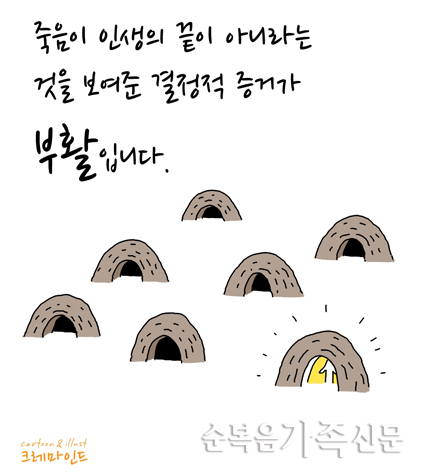 죽음이 인생의 끝이 아니라는
것을 보여준 결정적 증거가
부활입니다.
cartoon & illust
크레마인드
순복음가족신문